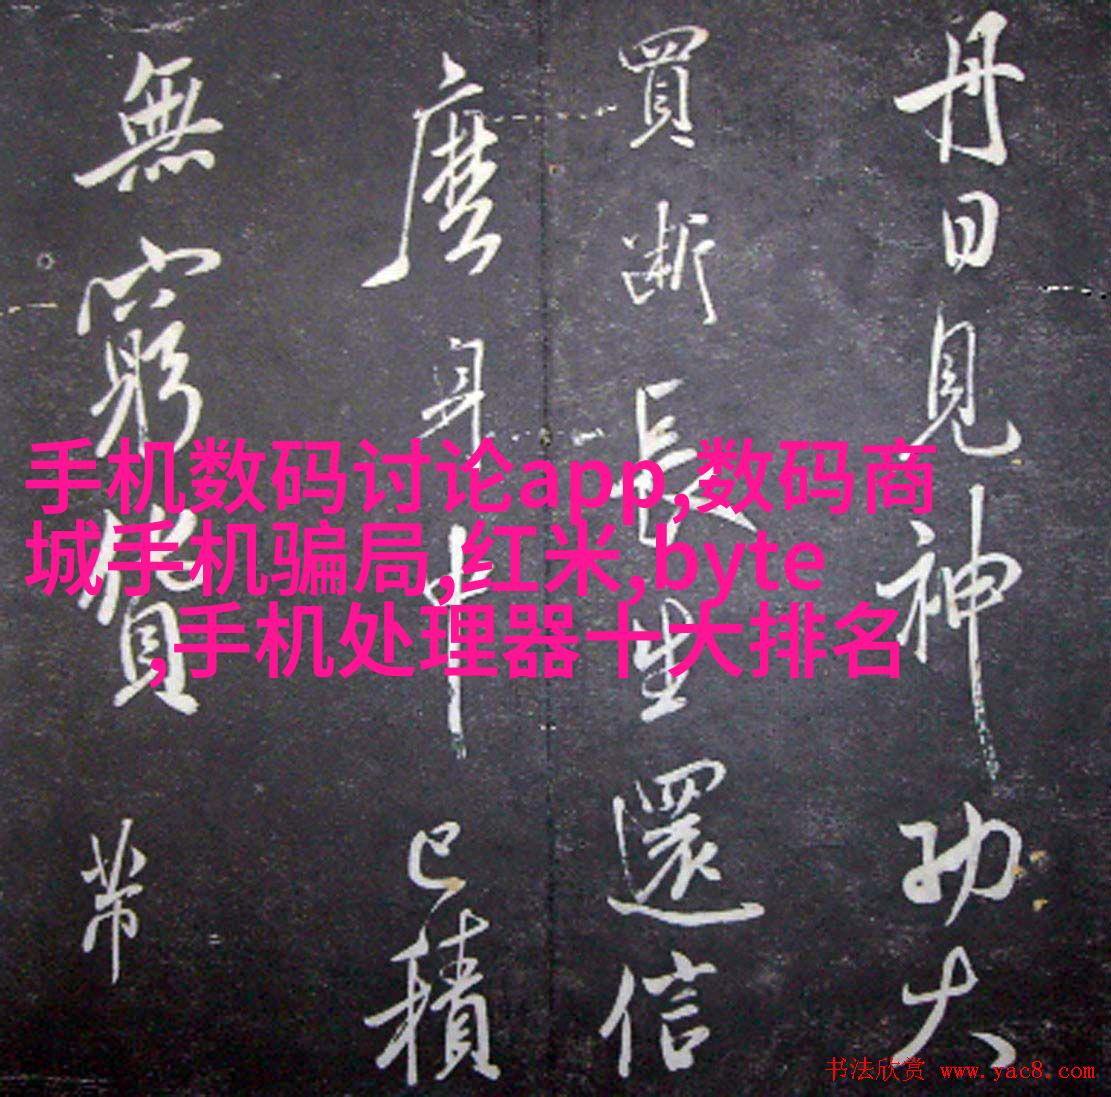 丹日見神功大
買斷長生還信
歷身中已積
無窮貨带
手机数码讨论app,数码商
城手机骗局,红米,byte
,手机处理器十大排名
书法欣赏 www.yac8.com